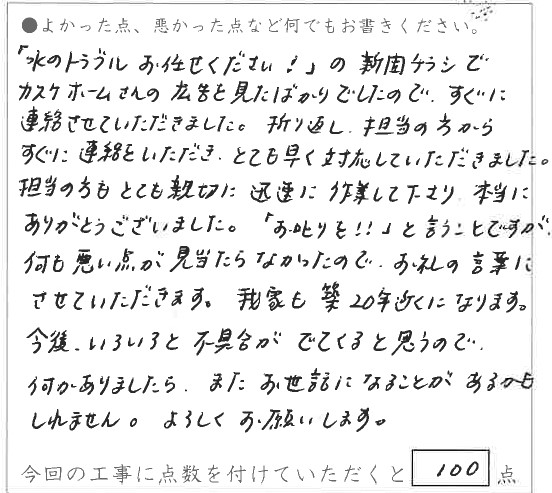 ●よかった点、悪かった点など何でもお書きください。
「水のトラブル お任せください!」の 新聞チラシで
カスケホームさんの 広告を見たばかりでしたので、すぐに
連絡させていただきました。 折り返し、担当の方から
すぐに 連絡をいただき、とても早く対応していただきました。
担当の方も とても親切に 迅速に 作業して下さり、本当に
ありがとうございました。 「お叱りを!!」と言うことですが、
何も 悪い点が 見当たらなかったので、お礼の 言葉に
させていただきます。 我家も 築20年近くになります。
今後、いろいろと 不具合が でてくると思うので、
何かありましたら、また お世話になることが あるかも
しれません。 よろしく お願いします。
今回の工事に点数を付けていただくと 100 点